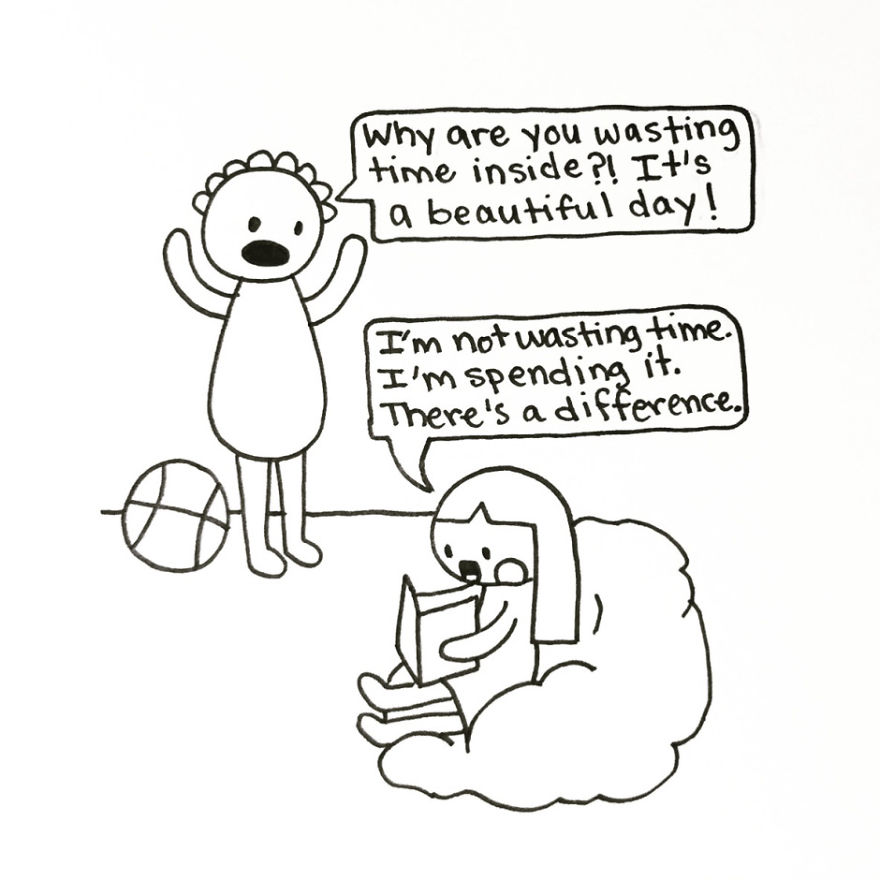 Why are you wasting
time inside?! It's
a beautiful day!
I'm not wasting time.
I'm spending it.
There's a difference.